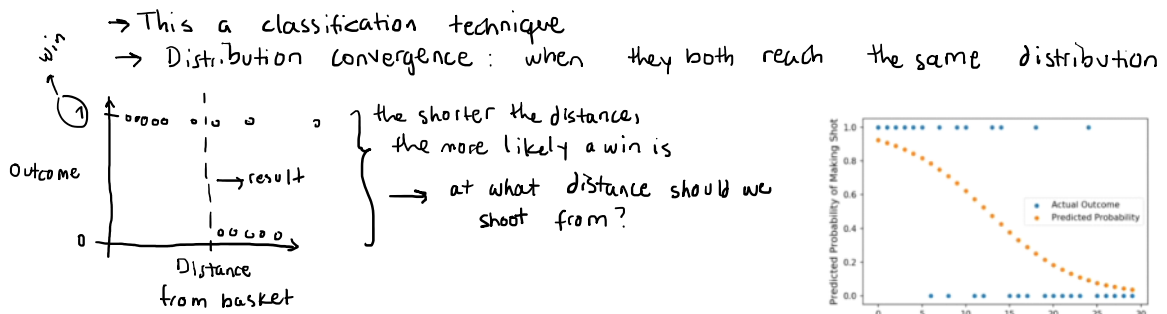 → This a classification technique
→ Distribution convergence: when they both reach the same distribution
win
1
Outcome
0
→ result
Distance
from basket
the shorter the distance,
the more likely a win is
→ at what distance should we
shoot from?
Predicted Probability of Making Shot
1.0
0.8
0.6
0.4
0.2
0.0
Actual Outcome
Predicted Probability
0
5
10
15
20
25
30